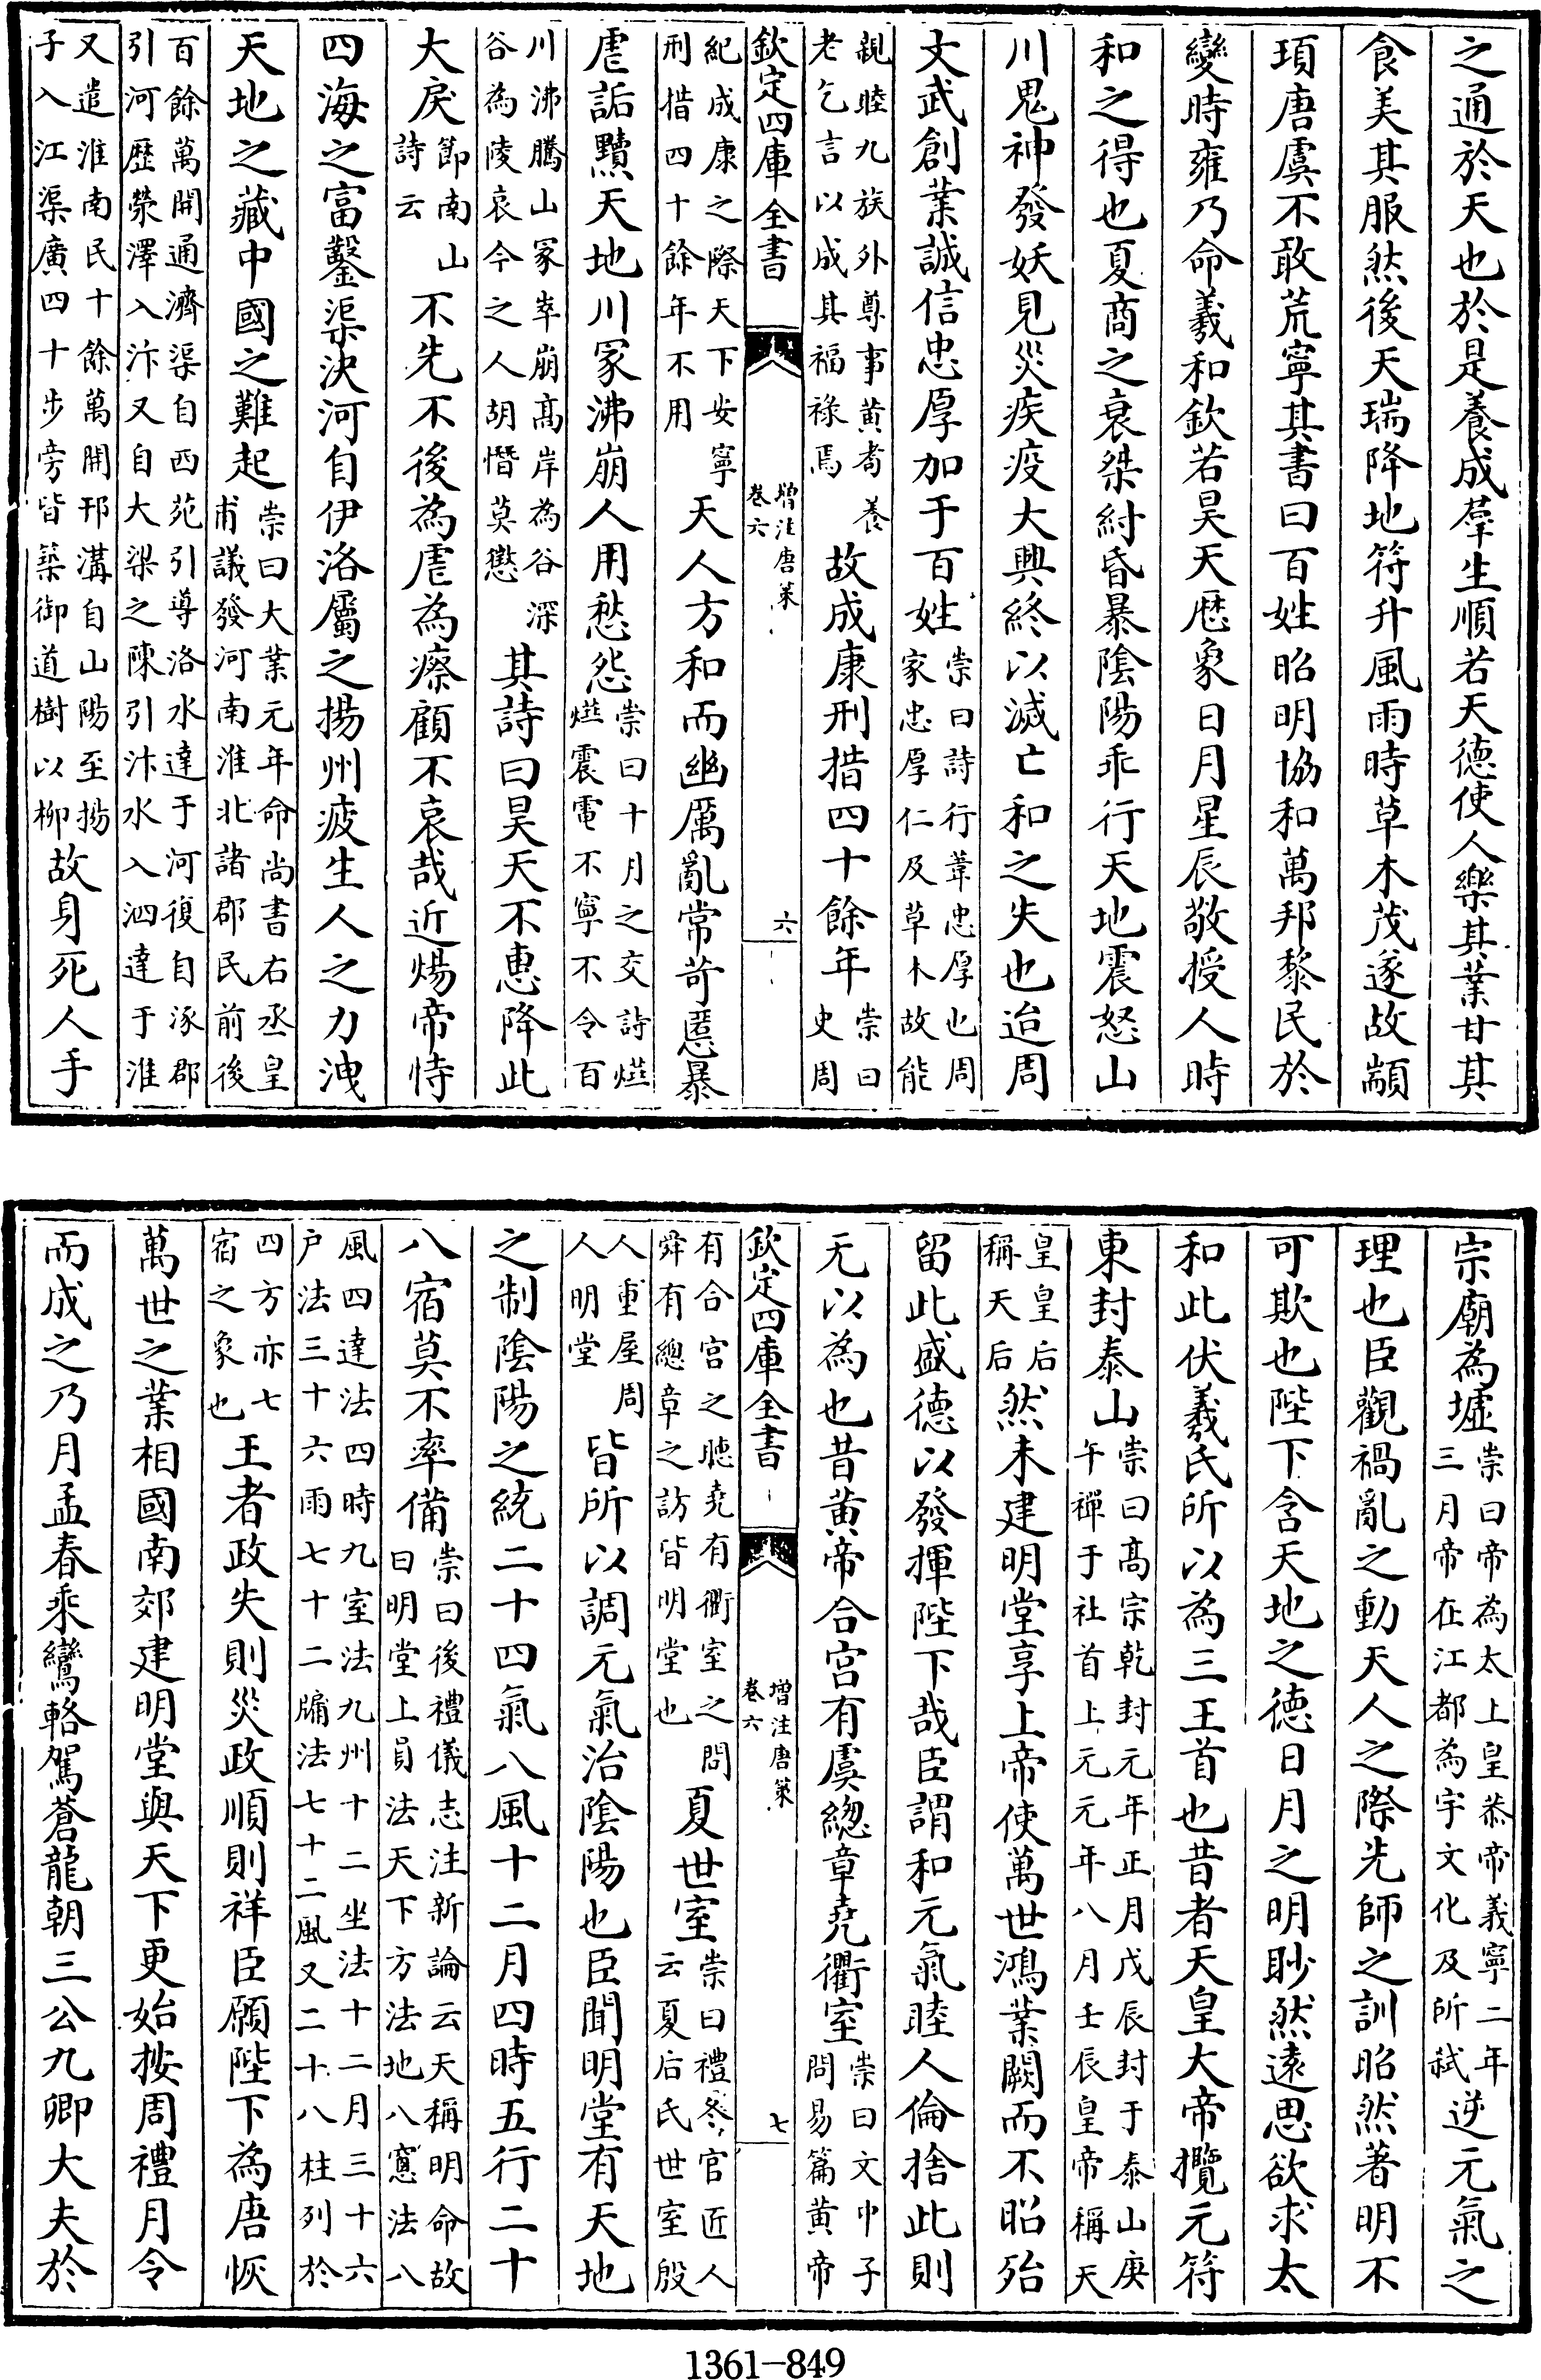 之通於天也於是養成羣生順若天德使人樂其業甘其
食美其服然後天瑞降地符升風雨時草木茂遂故顓
頊唐虞不敢荒寧其書曰百姓昭明協和萬邦黎民於
變時雍乃命羲和欽若昊天厯象日月星辰敬授人時
和之得也夏商之衰桀紂昏暴陰陽乖行天地震怒山
川鬼神發妖見災疾疫大興終以滅亡和之失也迨周
文武創業誠信忠厚加于百姓崇曰詩行葦忠厚也周家忠厚仁及草木故能
親睦九族外尊事黃耇養老乞言以成其福祿焉故成康刑措四十餘年崇曰史周
欽定四庫全書 增注唐策 卷六 六
紀成康之際天下安寧刑措四十餘年不用天人方和而幽厲亂常苛慝暴
虐詬黷天地川冢沸崩人用愁怨崇曰十月之交詩爗爗震電不寧不令百
川沸騰山冢崒崩高岸為谷深谷為陵哀今之人胡憯莫懲其詩曰昊天不惠降此
大戾節南山詩云不先不後為虐為瘵顧不哀哉近煬帝恃
四海之富鑿渠決河自伊洛屬之揚州疲生人之力洩
天地之藏中國之難起崇曰大業元年命尚書右丞皇甫議發河南淮北諸郡民前後
百餘萬開通濟渠自西苑引導洛水達于河復自涿郡引河歷滎澤入汴又自大梁之陳引汴水入泗達于淮
又遣淮南民十餘萬開邗溝自山陽至揚子入江渠廣四十步旁皆築御道樹以柳故身死人手
宗廟為墟崇曰帝為太上皇恭帝義寧二年三月帝在江都為宇文化及所弒逆元氣之
理也臣觀禍亂之動天人之際先師之訓昭然著明不
可欺也陛下含天地之德日月之明眇然遠思欲求太
和此伏羲氏所以為三王首也昔者天皇大帝攬元符
東封泰山崇曰高宗乾封元年正月戊辰封于泰山庚午禪于社首上元元年八月壬辰皇帝稱天
皇皇后稱天后然未建明堂享上帝使萬世鴻業闕而不昭殆
留此盛德以發揮陛下哉臣謂和元氣睦人倫捨此則
无以為也昔黃帝合宮有虞總章堯衢室崇曰文中子問易篇黃帝
欽定四庫全書 增注唐策 卷六 七
有合宮之聽堯有衢室之問舜有總章之訪皆明堂也夏世室崇曰禮冬官匠人云夏后氏世室殷
人重屋周人明堂皆所以調元氣治陰陽也臣聞明堂有天地
之制陰陽之統二十四氣八風十二月四時五行二十
八宿莫不率備崇曰後禮儀志注新論云天稱明命故曰明堂上員法天下方法地八窻法八
風四達法四時九室法九州十二坐法十二月三十六户法三十六雨七十二牖法七十二風又二十八柱列於
四方亦七宿之象也王者政失則災政順則祥臣願陛下為唐恢
萬世之業相國南郊建明堂與天下更始按周禮月令
而成之乃月孟春乘鸞輅駕蒼龍朝三公九卿大夫於
1361-849